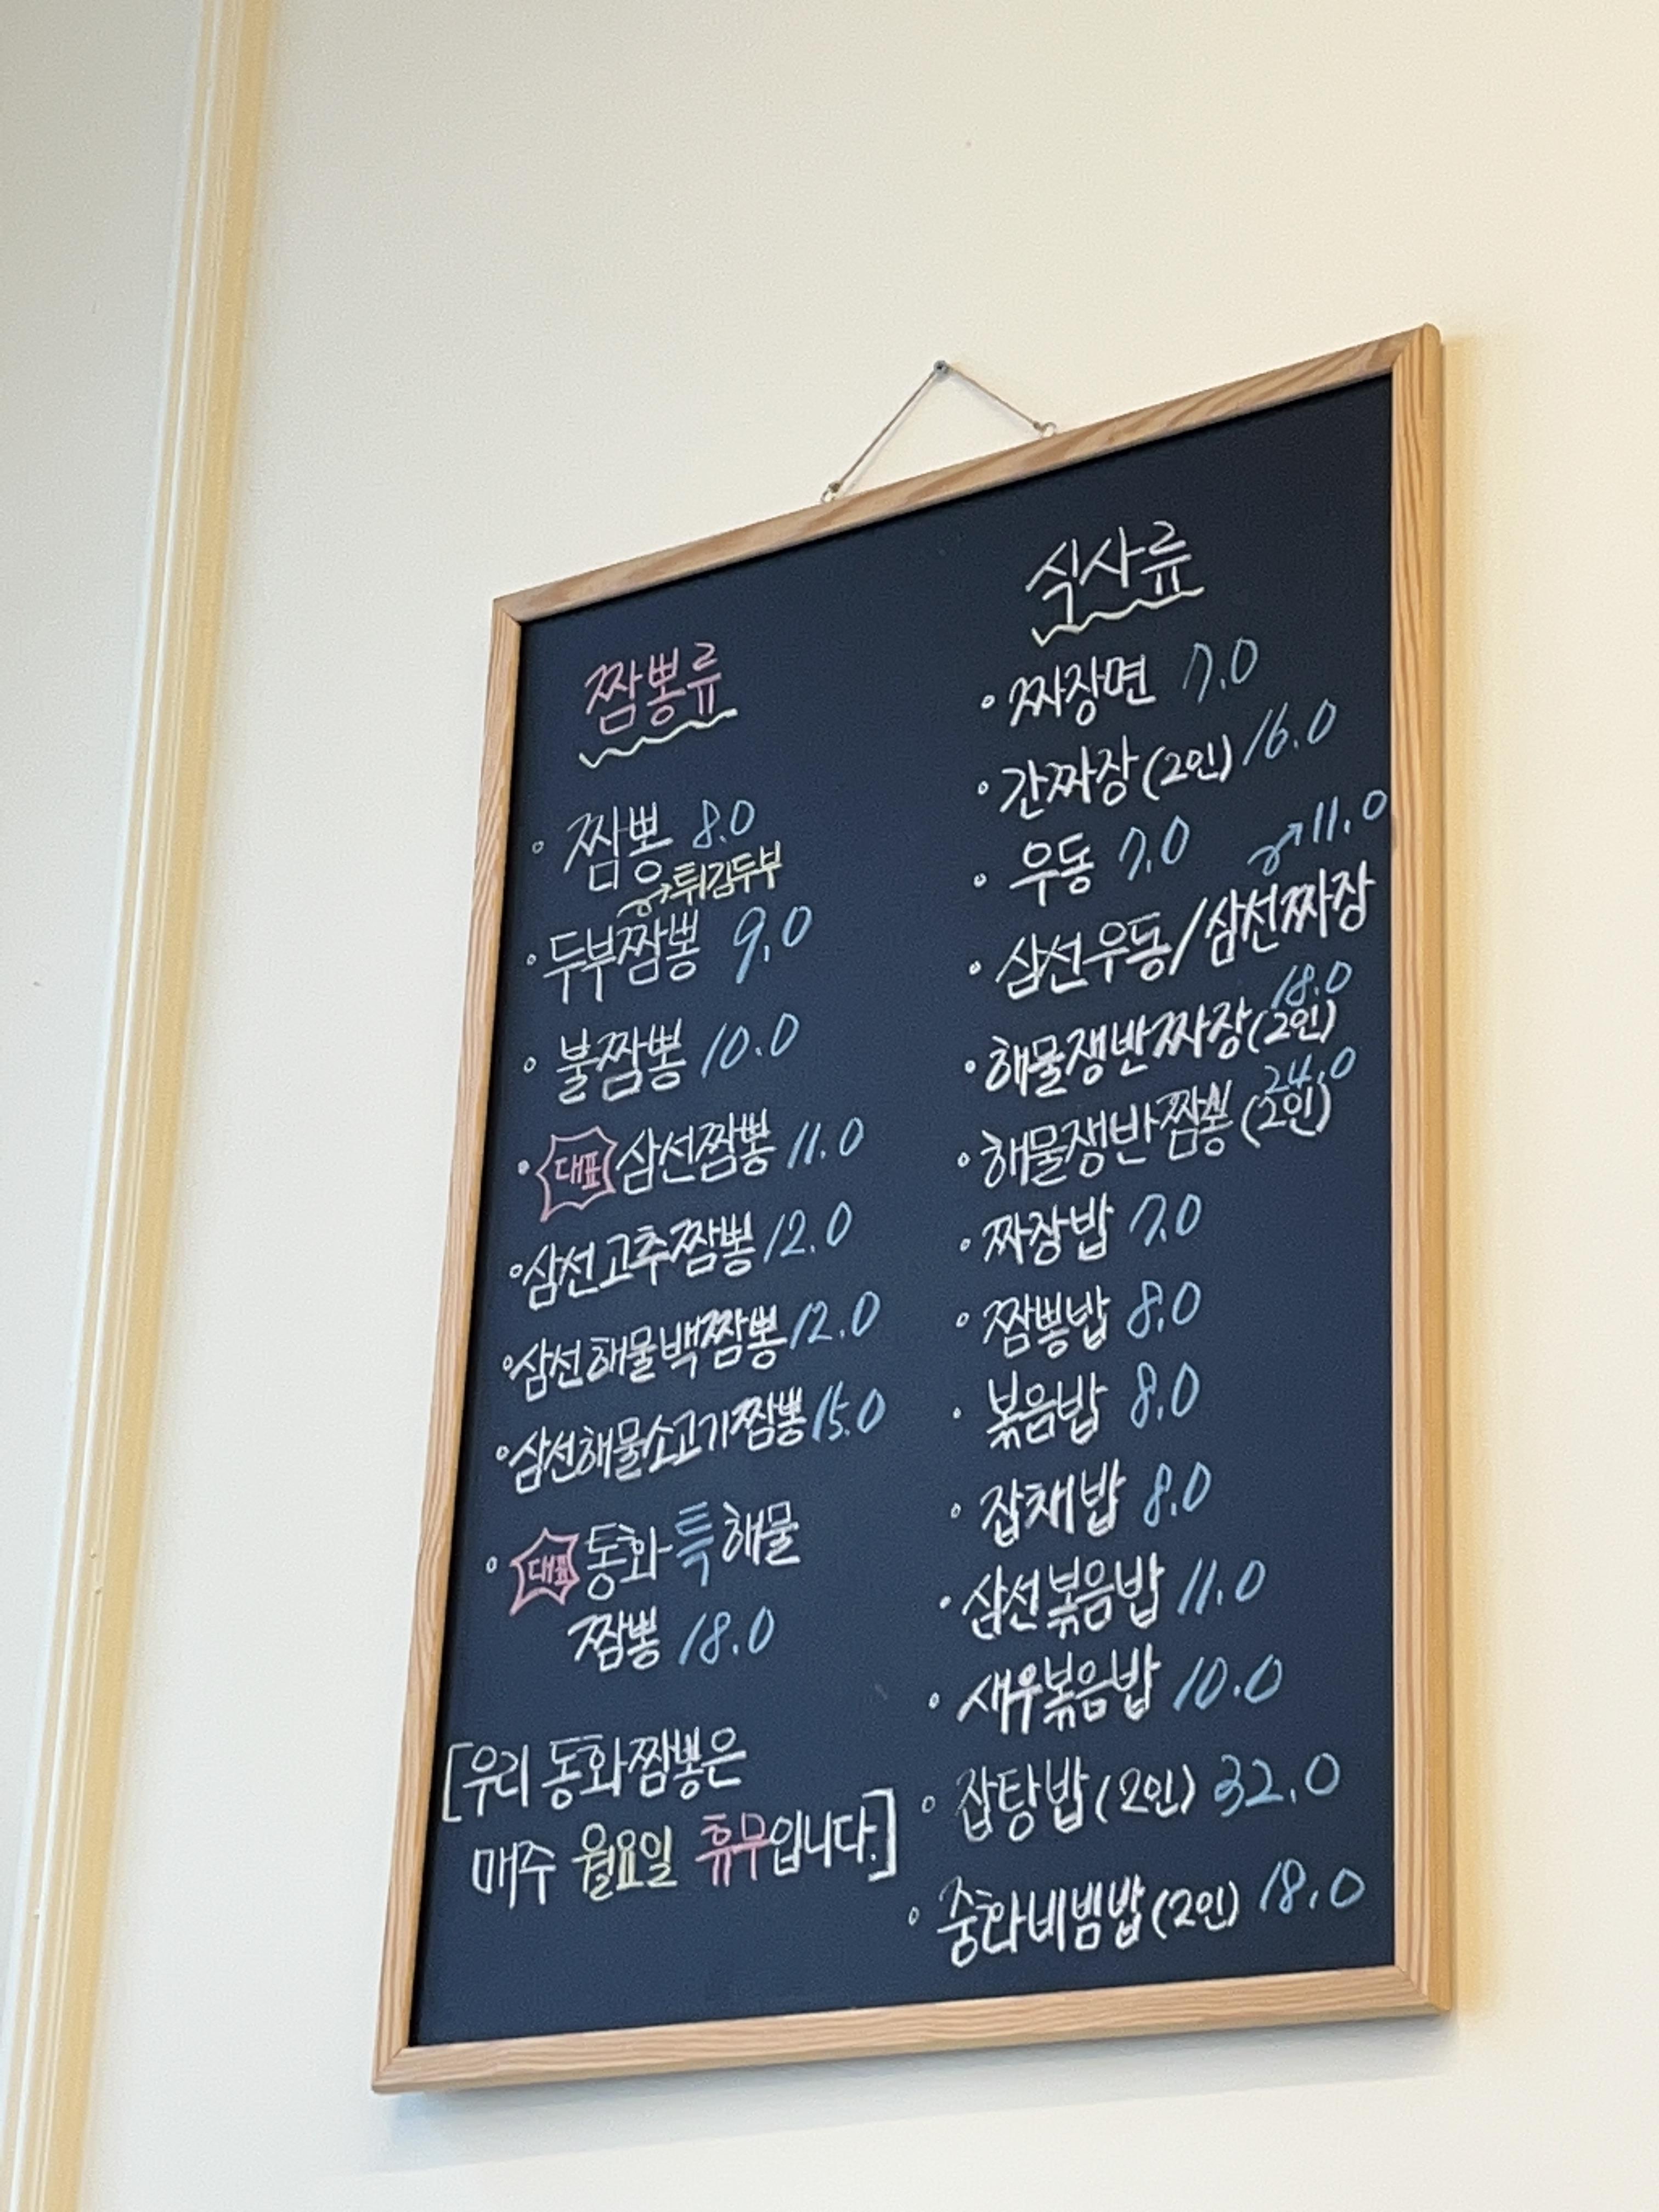 짬뽕류
짬뽕 8.0
→튀김두부
두부짬뽕 9.0
불짬뽕 10.0
대표 삼선짬뽕 11.0
삼선고추짬뽕 12.0
삼선해물백짬뽕 12.0
삼선해물소고기짬뽕 15.0
대표 동화특해물
짬뽕 18.0
[우리 동화짬뽕은
매주 월요일 휴무입니다.]
식사류
짜장면 7.0
간짜장(2인) 16.0
우동 7.0
→11.0
삼선우동/삼선짜장
18.0
해물쟁반짜장(2인)
24.0
해물쟁반짬뽕(2인)
짜장밥 7.0
짬뽕밥 8.0
볶음밥 8.0
잡채밥 8.0
삼선볶음밥 11.0
새우볶음밥 10.0
잡탕밥(2인) 32.0
중화비빔밥(2인) 18.0